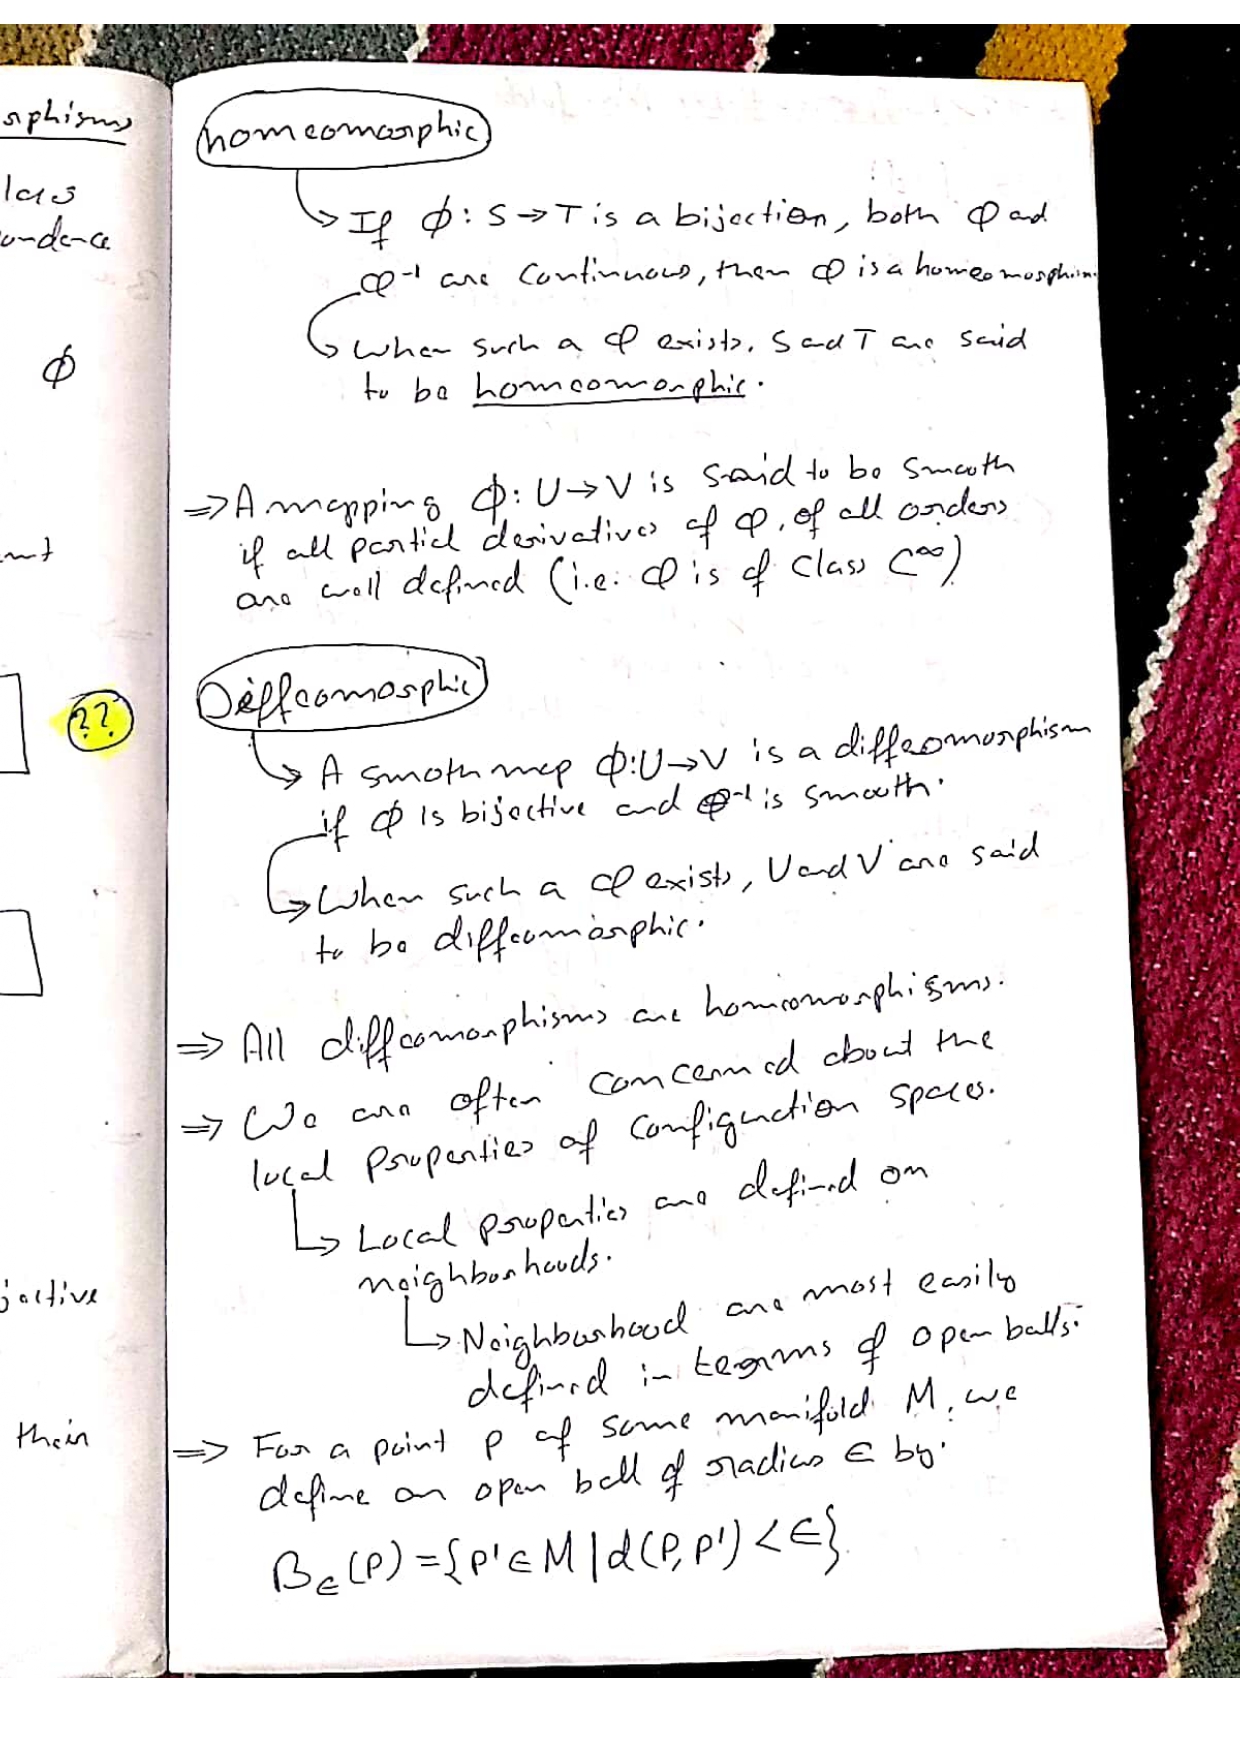 homeomorphic
If ϕ : S → T is a bijection, both φ and
φ⁻¹ are continuous, then φ is a homeomorphism.
When such a φ exists, S and T are said
to be homeomorphic.
⇒ A mapping ϕ : U → V is said to be smooth
if all partial derivatives of φ, of all orders
are well defined (i.e: φ is of class C^∞)
Diffeomorphic
A smoth map ϕ:U→V is a diffeomorphism
if ϕ is bijective and φ⁻¹ is smooth.
When such a φ exists, U and V are said
to be diffeomorphic.
⇒ All diffeomorphisms are homeomorphisms.
⇒ We are often concerned about the
local properties of configuration spaces.
Local properties are defined on
neighborhoods.
Neighborhood are most easily
defined in terms of open balls.
⇒ For a point p of some manifold M, we
define an open ball of radius ∈ by:
B_∈(P) = {P' ∈ M | d(P, P') < ∈}
ϕ
??
jective
their